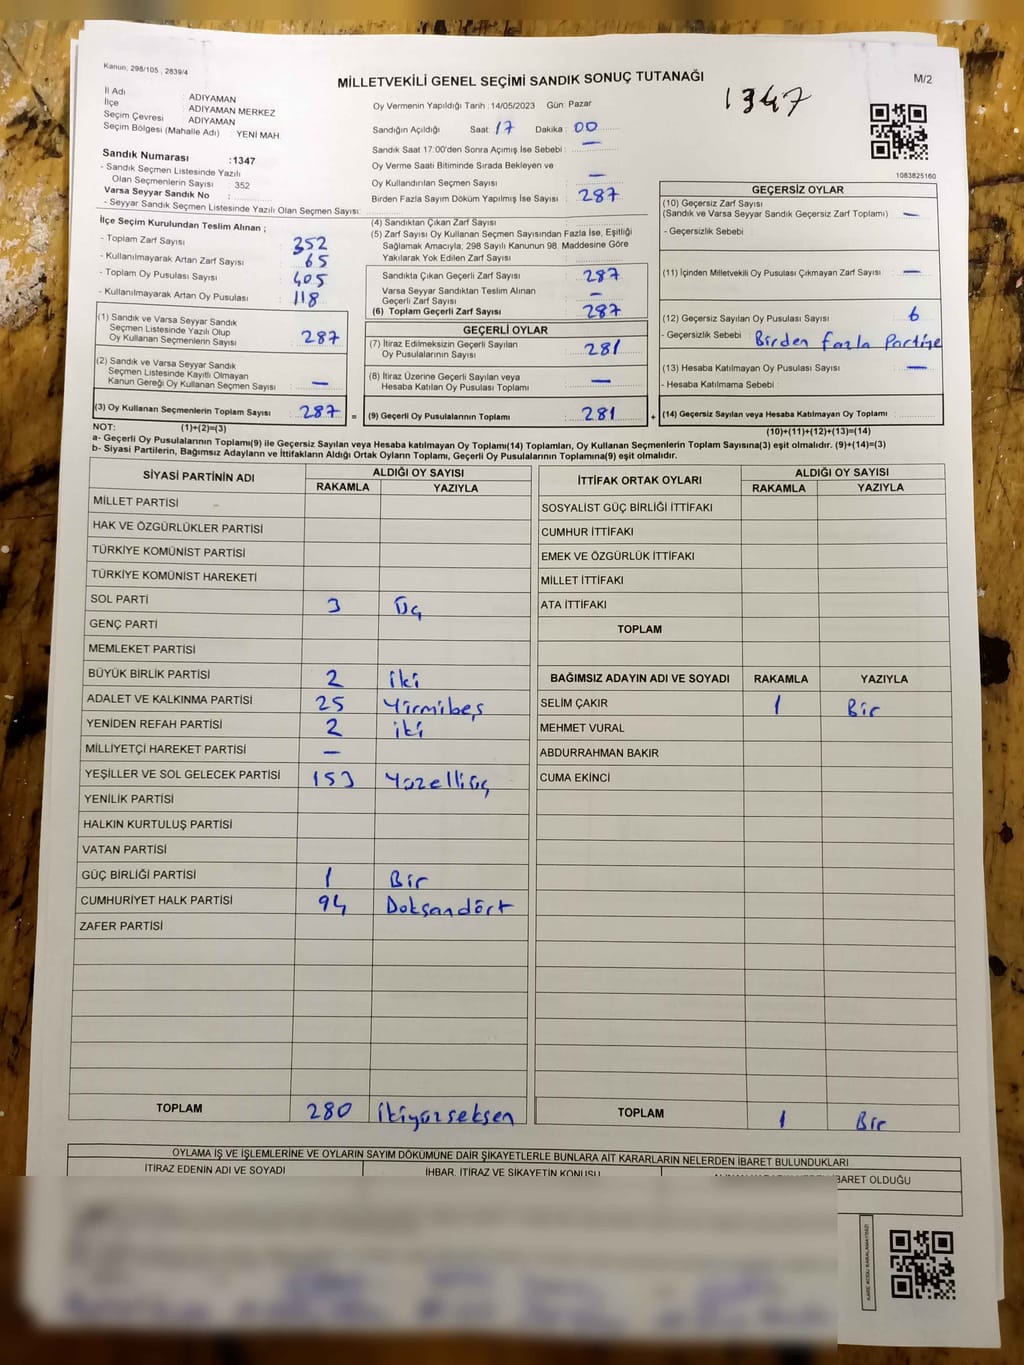 Kanun, 298/105 , 2839/4
MİLLETVEKİLİ GENEL SEÇİMİ SANDIK SONUÇ TUTANAĞI
M/2
1347
İl Adı : ADIYAMAN
İlçe : ADIYAMAN MERKEZ
Seçim Çevresi : ADIYAMAN
Seçim Bölgesi (Mahalle Adı) : YENİ MAH.
Sandık Numarası :1347
- Sandık Seçmen Listesinde Yazılı
Olan Seçmenlerin Sayısı : 352
Varsa Seyyar Sandık No :
- Seyyar Sandık Seçmen Listesinde Yazılı Olan Seçmen Sayısı:
Oy Vermenin Yapıldığı Tarih : 14/05/2023 Gün: Pazar
Sandığın Açıldığı Saat: 17 Dakika : 00
Sandık Saat 17:00'den Sonra Açımış İse Sebebi : —
Oy Verme Saati Bitiminde Sırada Bekleyen ve
Oy Kullandırılan Seçmen Sayısı : —
Birden Fazla Sayım Döküm Yapılmış İse Sayısı : 287
1083825160
İlçe Seçim Kurulundan Teslim Alınan ;
- Toplam Zarf Sayısı : 352
- Kullanılmayarak Artan Zarf Sayısı : 65
- Toplam Oy Pusulası Sayısı : 405
- Kullanılmayarak Artan Oy Pusulası : 118
(1) Sandık ve Varsa Seyyar Sandık
Seçmen Listesinde Yazılı Olup
Oy Kullanan Seçmenlerin Sayısı : 287
(2) Sandık ve Varsa Seyyar Sandık
Seçmen Listesinde Kayıtlı Olmayan
Kanun Gereği Oy Kullanan Seçmen Sayısı : —
(3) Oy Kullanan Seçmenlerin Toplam Sayısı : 287 =
(4) Sandıktan Çıkan Zarf Sayısı :
(5) Zarf Sayısı Oy Kullanan Seçmen Sayısından Fazla İse, Eşitliği
Sağlamak Amacıyla, 298 Sayılı Kanunun 98. Maddesine Göre
Yakılarak Yok Edilen Zarf Sayısı :
Sandıkta Çıkan Geçerli Zarf Sayısı : 287
Varsa Seyyar Sandıktan Teslim Alınan
Geçerli Zarf Sayısı : —
(6) Toplam Geçerli Zarf Sayısı : 287
GEÇERLİ OYLAR
(7) İtiraz Edilmeksizin Geçerli Sayılan
Oy Pusulalarının Sayısı : 281
(8) İtiraz Üzerine Geçerli Sayılan veya
Hesaba Katılan Oy Pusulası Toplamı : —
(9) Geçerli Oy Pusulalarının Toplamı : 281 +
GEÇERSİZ OYLAR
(10) Geçersiz Zarf Sayısı
(Sandık ve Varsa Seyyar Sandık Geçersiz Zarf Toplamı) : —
- Geçersizlik Sebebi :
(11) İçinden Milletvekili Oy Pusulası Çıkmayan Zarf Sayısı : —
(12) Geçersiz Sayılan Oy Pusulası Sayısı : 6
- Geçersizlik Sebebi : Birden fazla Partiye
(13) Hesaba Katılmayan Oy Pusulası Sayısı : —
- Hesaba Katılmama Sebebi :
(14) Geçersiz Sayılan veya Hesaba Katılmayan Oy Toplamı :
NOT: (1)+(2)=(3)
(10)+(11)+(12)+(13)=(14)
a- Geçerli Oy Pusulalarının Toplamı(9) ile Geçersiz Sayılan veya Hesaba katılmayan Oy Toplamı(14) Toplamları, Oy Kullanan Seçmenlerin Toplam Sayısına(3) eşit olmalıdır. (9)+(14)=(3)
b- Siyasi Partilerin, Bağımsız Adayların ve İttifakların Aldığı Ortak Oyların Toplamı, Geçerli Oy Pusulalarının Toplamına(9) eşit olmalıdır.
SİYASİ PARTİNİN ADI ALDIĞI OY SAYISI
RAKAMLA YAZIYLA
MİLLET PARTİSİ
HAK VE ÖZGÜRLÜKLER PARTİSİ
TÜRKİYE KOMÜNİST PARTİSİ
TÜRKİYE KOMÜNİST HAREKETİ
SOL PARTİ 3 Üç
GENÇ PARTİ
MEMLEKET PARTİSİ
BÜYÜK BİRLİK PARTİSİ 2 iki
ADALET VE KALKINMA PARTİSİ 25 Yirmibeş
YENİDEN REFAH PARTİSİ 2 iki
MİLLİYETÇİ HAREKET PARTİSİ —
YEŞİLLER VE SOL GELECEK PARTİSİ 153 Yüzelliüç
YENİLİK PARTİSİ
HALKIN KURTULUŞ PARTİSİ
VATAN PARTİSİ
GÜÇ BİRLİĞİ PARTİSİ 1 Bir
CUMHURİYET HALK PARTİSİ 94 Doksandört
ZAFER PARTİSİ
TOPLAM 280 ikiyüzseksen
İTTİFAK ORTAK OYLARI ALDIĞI OY SAYISI
RAKAMLA YAZIYLA
SOSYALİST GÜÇ BİRLİĞİ İTTİFAKI
CUMHUR İTTİFAKI
EMEK VE ÖZGÜRLÜK İTTİFAKI
MİLLET İTTİFAKI
ATA İTTİFAKI
TOPLAM
BAĞIMSIZ ADAYIN ADI VE SOYADI RAKAMLA YAZIYLA
SELİM ÇAKIR 1 Bir
MEHMET VURAL
ABDURRAHMAN BAKIR
CUMA EKİNCİ
TOPLAM 1 Bir
OYLAMA İŞ VE İŞLEMLERİNE VE OYLARIN SAYIM DÖKÜMÜNE DAİR ŞİKAYETLERLE BUNLARA AİT KARARLARIN NELERDEN İBARET BULUNDUKLARI
İTİRAZ EDENİN ADI VE SOYADI İHBAR, İTİRAZ VE ŞİKAYETİN KONUSU İBARET OLDUĞU